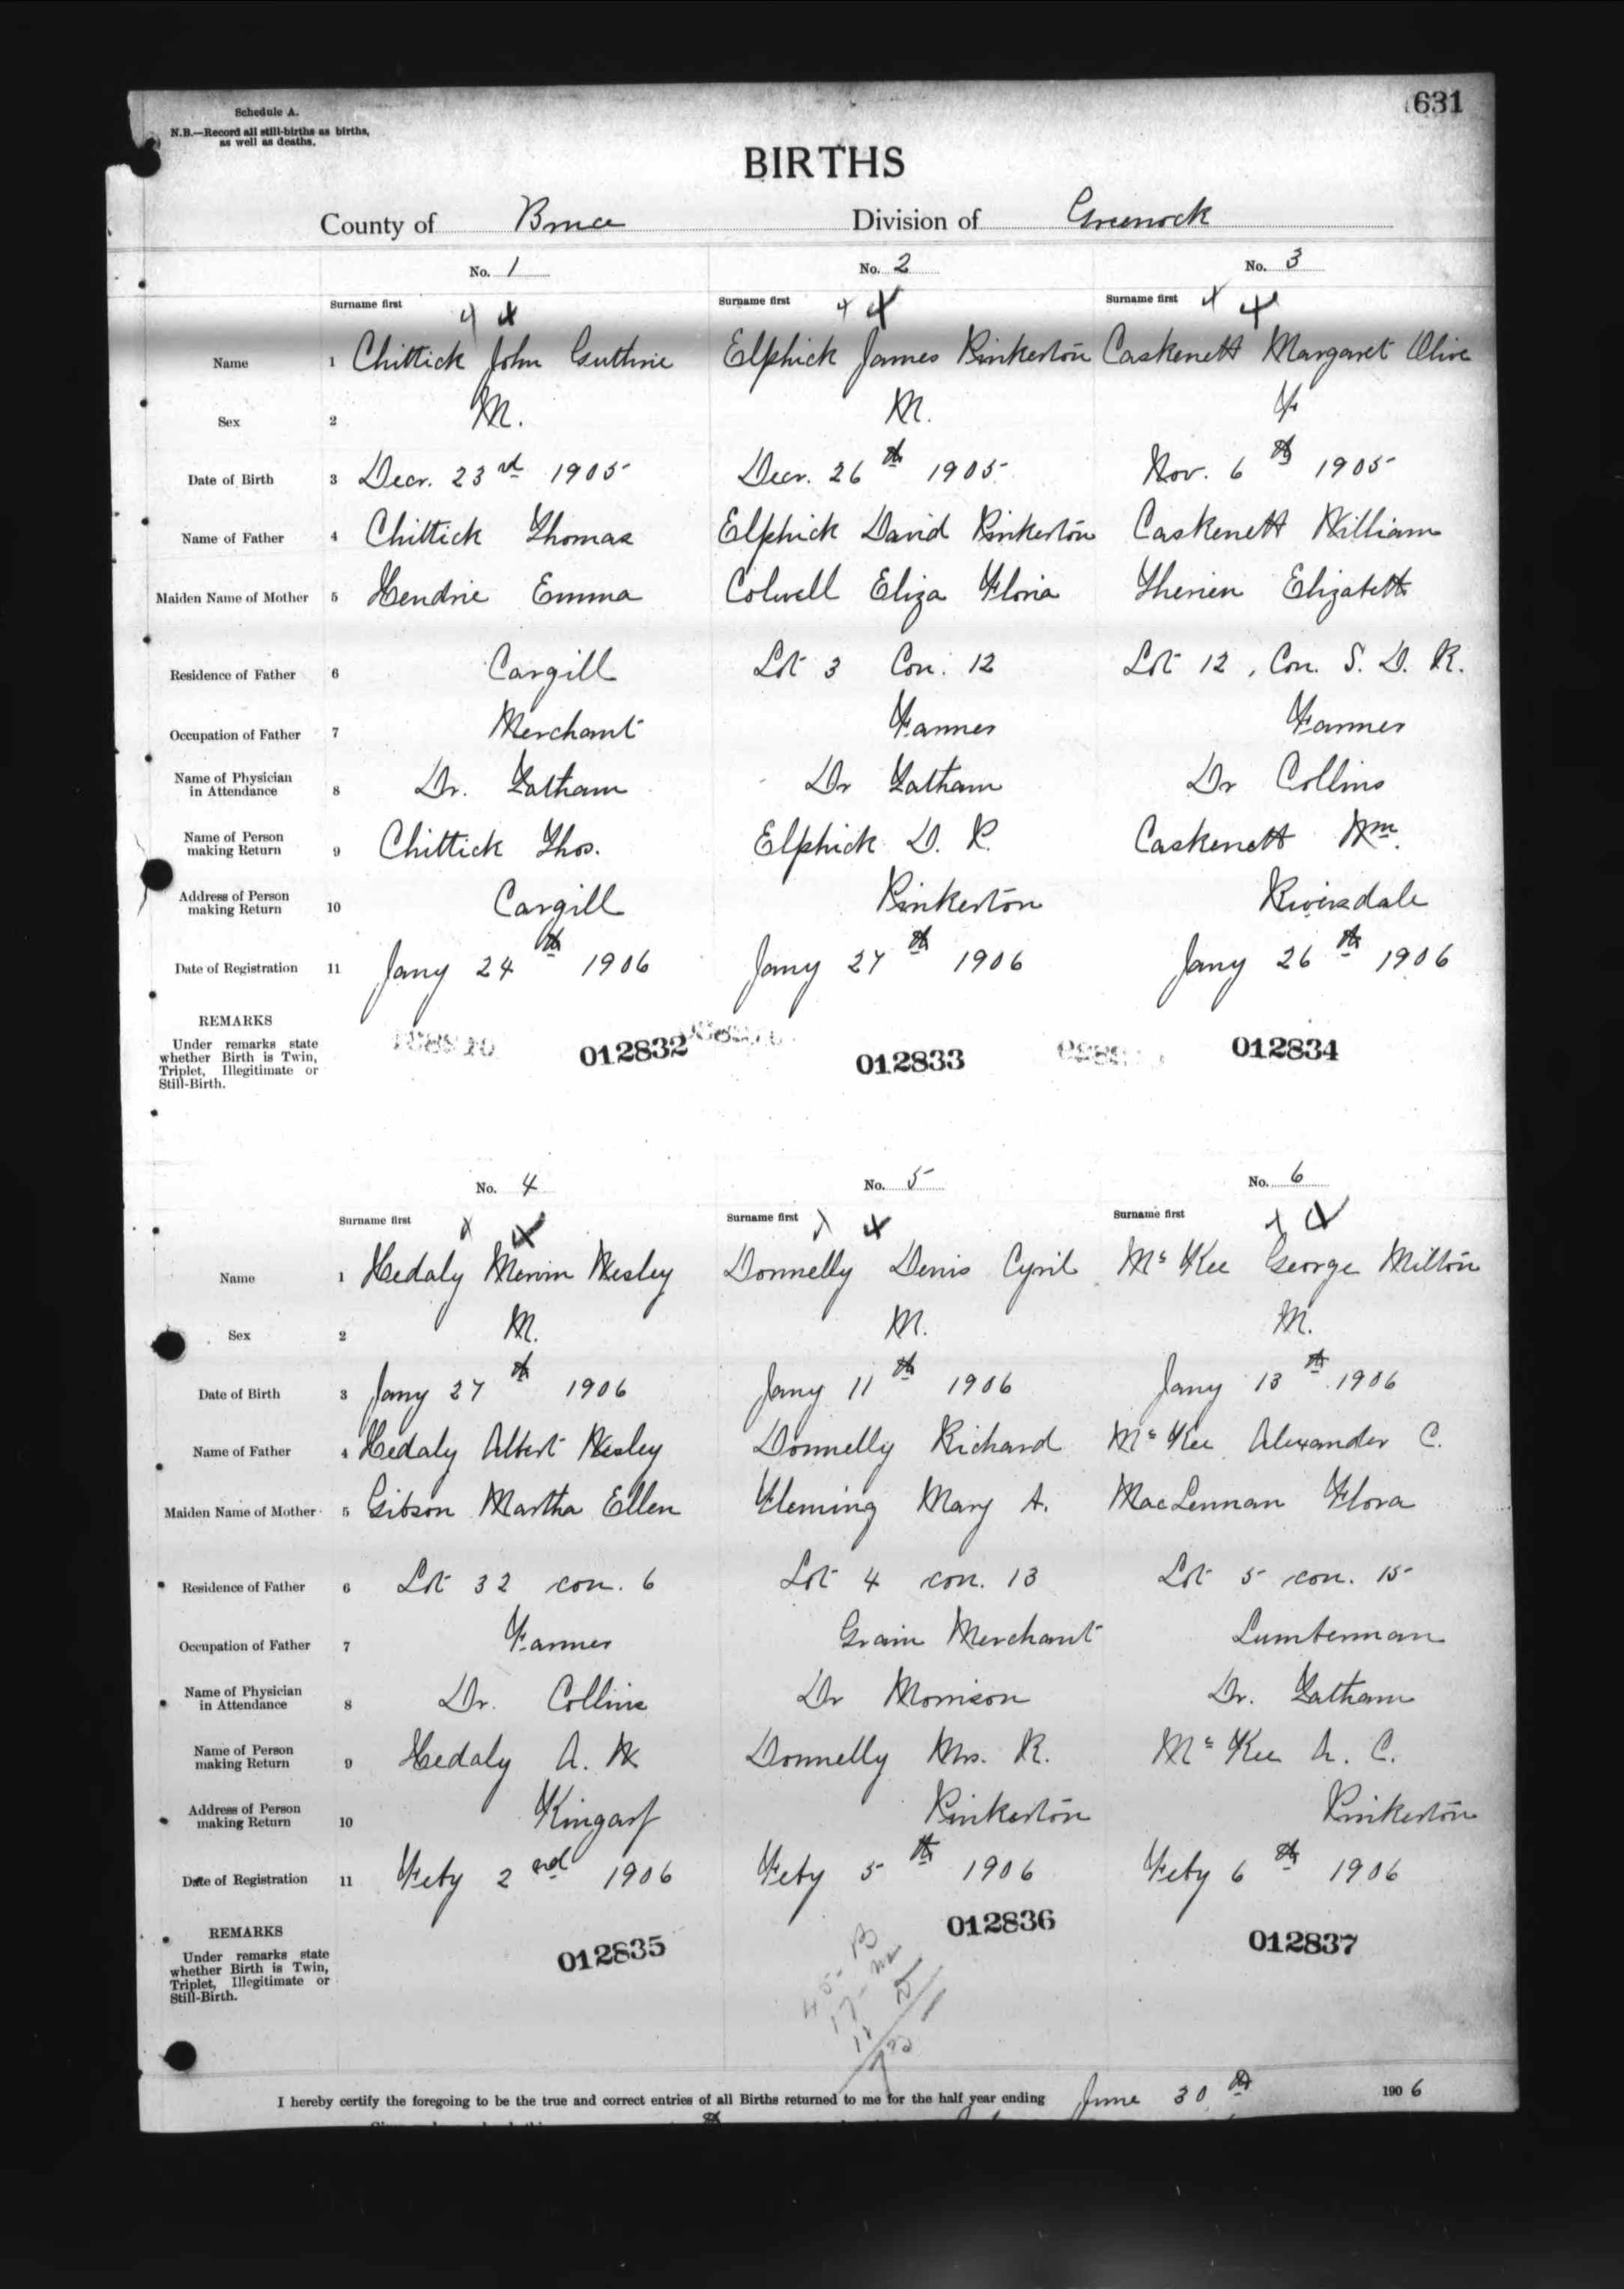 631
Schedule A.
N.B.—Record all still-births as births,
as well as deaths.
BIRTHS
County of Bruce Division of Greenock
No. 1 No. 2 No. 3
Surname first Surname first Surname first
Name 1 Chittick John Guthrie Elphick James Pinkerton Caskenett Margaret Olive
Sex 2 M. M. F
Date of Birth 3 Decr. 23rd 1905 Decr. 26th 1905 Nov. 6th 1905
Name of Father 4 Chittick Thomas Elphick David Pinkerton Caskenett William
Maiden Name of Mother 5 Hendrie Emma Colwell Eliza Floria Therien Elizabeth
Residence of Father 6 Cargill Lot 3 Con. 12 Lot 12, Con. S. D. R.
Occupation of Father 7 Merchant Farmer Farmer
Name of Physician
in Attendance 8 Dr. Latham Dr Latham Dr Collins
Name of Person
making Return 9 Chittick Thos. Elphick D. P. Caskenett Wm.
Address of Person
making Return 10 Cargill Pinkerton Riversdale
Date of Registration 11 Jany 24th 1906 Jany 27th 1906 Jany 26th 1906
REMARKS
Under remarks state
whether Birth is Twin,
Triplet, Illegitimate or
Still-Birth.
012832 012833 012834
No. 4 No. 5 No. 6
Surname first Surname first Surname first
Name 1 Hedaly Mervin Wesley Donnelly Denis Cyril McKee George Milton
Sex 2 M. M. M.
Date of Birth 3 Jany 27th 1906 Jany 11th 1906 Jany 13th 1906
Name of Father 4 Hedaly Albert Wesley Donnelly Richard McKee Alexander C.
Maiden Name of Mother 5 Gibson Martha Ellen Fleming Mary A. MacLennan Flora
Residence of Father 6 Lot 32 con. 6 Lot 4 con. 13 Lot 5 con. 15
Occupation of Father 7 Farmer Grain Merchant Lumberman
Name of Physician
in Attendance 8 Dr. Collins Dr Morrison Dr. Latham
Name of Person
making Return 9 Hedaly A. W Donnelly Mrs. R. McKee A. C.
Address of Person
making Return 10 Kingarf Pinkerton Pinkerton
Date of Registration 11 Feby 2nd 1906 Feby 5th 1906 Feby 6th 1906
REMARKS
Under remarks state
whether Birth is Twin,
Triplet, Illegitimate or
Still-Birth.
012835 012836 012837
I hereby certify the foregoing to be the true and correct entries of all Births returned to me for the half year ending June 30th 1906